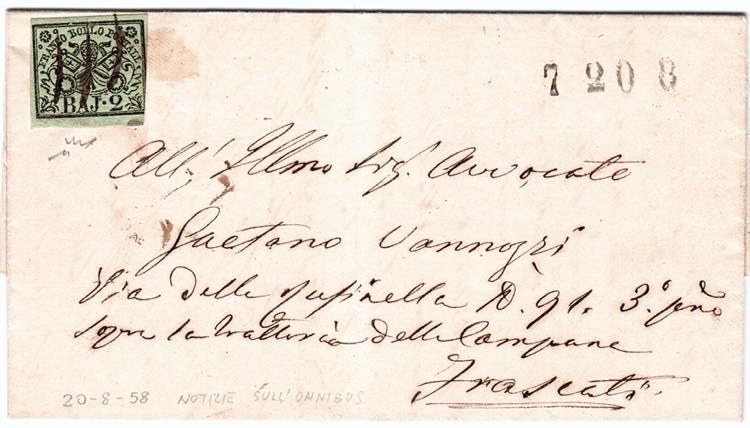 FRANCO BOLLO POSTALE
BAJ. 2
7 20 8
All' Illmo Sig. Avvocato
Gaetano Vannozzi
Via della Rufinella N. 91. 3° pno
sopra la trattoria delle Campane
Frascati
20-8-58 NOTIZIE SULL'OMNIBUS